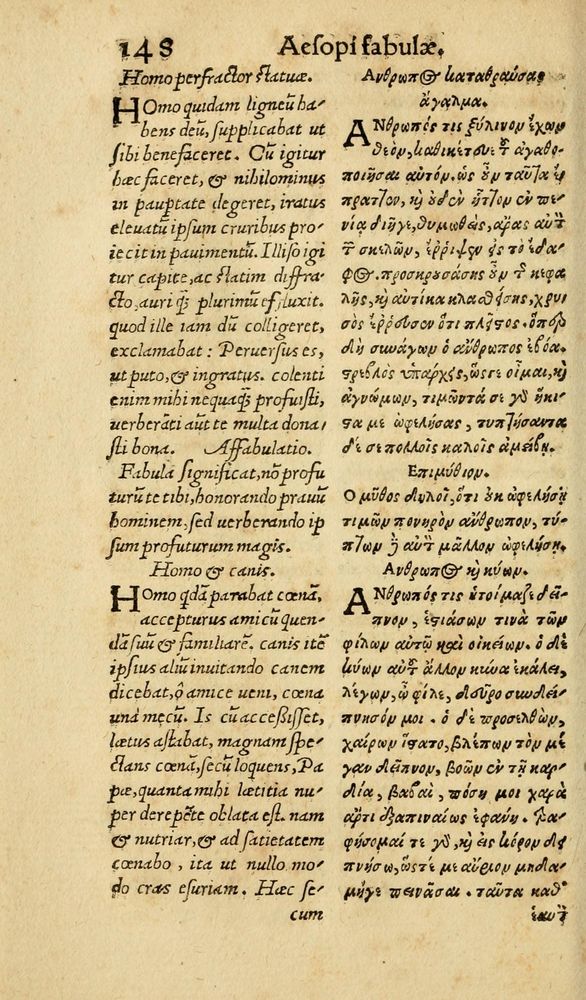 148 Aesopi fabulæ.
Homo perfractor statuæ.
HOmo quidam ligneũ ha⸗
bens deũ, supplicabat ut
sibi benefaceret. Cũ igitur
hæc faceret, & nihilominus
in pauptate degeret, iratus
eleuatũ ipsum cruribus pro⸗
iecit in pauimentũ. Illiso igi
tur capite, ac statim diffra⸗
cto, auri q̃ plurimũ effluxit.
quod ille iam dũ colligeret,
exclamabat: Peruersus es,
ut puto, & ingratus. colenti
enim mihi nequaq̃ profuisti,
uerberãti aũt te multa dona⸗
sti bona. Affabulatio.
Fabula significat, nõ profu
turũ te tibi, honorando prauũ
hominem, sed uerberando ip
sum profuturum magis.
Homo & canis.
HOmo qdã parabat cœnã,
accepturus amicũ quen⸗
dã suũ & familiarẽ. canis itẽ
ipsius aliũ inuitando canem
dicebat, ô amice ueni, cœna
unà mecũ. Is cũ accessisset,
lætus astabat, magnam spe⸗
ctans cœnã, secũ loquens, Pa
pæ, quanta mihi lætitia nu⸗
per derepẽte oblata est. nam
& nutriar, & ad satietatem
cœnabo, ita ut nullo mo⸗
do cras esuriam. Hæc se⸗
cum
Ανθρωπος καταθραύσας
ἄγαλμα.
ΑΝθρωπός τις ξύλινον ἔχων
θεὸν, καθικέτευε τȣ͂ ἀγαθο⸗
ποιῆσαι αὐτόν. ὡς ȣ̓ν ταῦτα ἔ
πραττον, κỳ ȣ̓δὲν ἧττον ἐν πε⸗
νίᾳ διῆγε, θυμωθεὶς, ἄρας αὐτ
τ σκελῶν, ἔῤῥιψεν εἰς τὸ ἔδα⸗
φος. προσκρουσάσης ȣ̓ν τ κεφα
λῆς, κỳ αὐτίκα κλαθείσης, χρυ
σὸς ἔῤῥευσεν ὅτι πλεῖστος. ὅπερ
δὴ συνάγων ὁ ἄνθρωπος ἐβόα.
στρεβλὸς ὑπάρχεις, ὥς γε οἶμαι, κỳ
ἀγνώμων. τιμῶντά σε γδ ἥκι⸗
στα με ὠφέλησας, τυπτήσαντα
δέ σε πολλοῖς καλοῖς ἀμείβῃ.
Επιμύθιον.
Ο μῦθος δηλοῖ, ὅτι ȣ̓κ ὠφελήσῃ
τιμῶν πονηρὸν ἄνθρωπον, τύ⸗
πτων δ αὐτ μᾶλλον ὠφελήσῃ.
Ανθρωπος κỳ κύων.
ΑΝθρωπός τις ἡτοίμαζε δεῖ⸗
πνον, ἑστιάσων τινὰ τῶν
φίλων αὐτῷ καὶ οἰκείων. ὁ δὲ
κύων αὐτȣ͂ ἄλλον κύνα ἐκάλει,
λέγων, ὦ φίλε, δεῦρο συνδεί⸗
πνησόν μοι. ὁ δὲ προσελθὼν,
χαίρων ἵστατο, βλέπων τὸν μέ
γαν δεῖπνον, βοῶν ἐν τῇ καρ⸗
δίᾳ, βαβαὶ, πόση μοι χαρὰ
ἄρτι ἐξαπιναίως ἐφάνη. τρα⸗
φήσομαί τε γδ, κỳ εἰς κόρον δει
πνήσω, ὥστε με αὔριον μηδα⸗
μῆγε πεινᾶσαι. ταῦτα καθ'
ἑαυτ